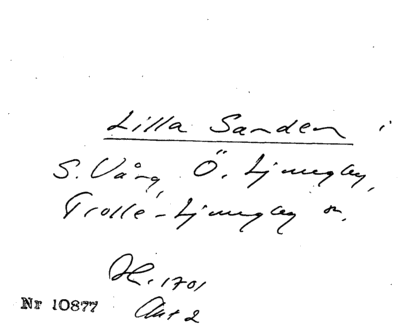 Lilla Sanden i
S. Vång, Ö. Ljungby,
Trolle-Ljungby sn.
H. 1701
Akt 2
Nr 10877